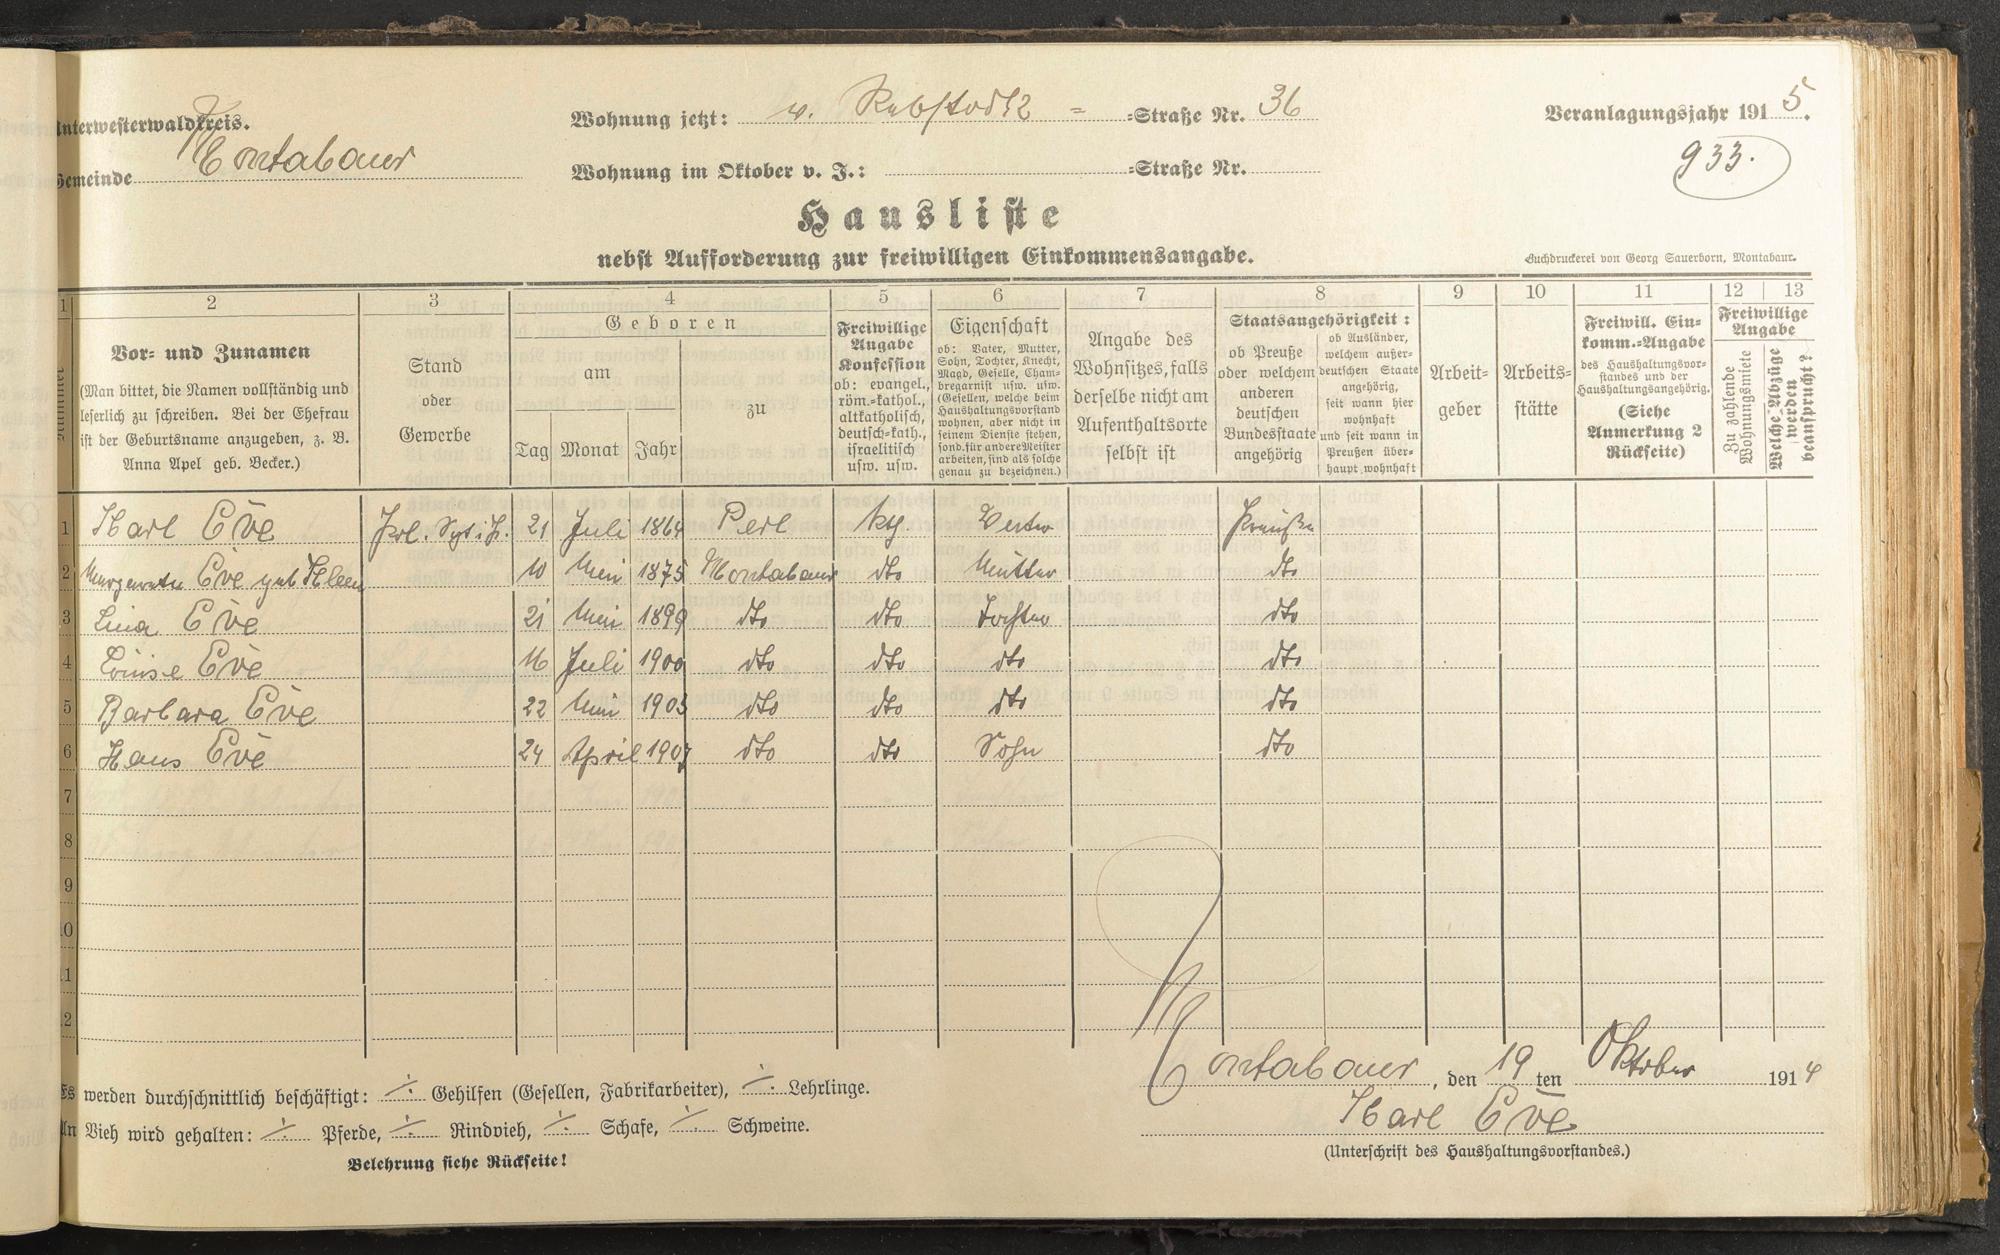 Unterwesterwaldkreis.
Wohnung jetzt: v. Rebstock =Straße Nr. 36
Veranlagungsjahr 1915.
Gemeinde Montabaur
Wohnung im Oktober v. J.: =Straße Nr.
933.
Hausliste
nebst Aufforderung zur freiwilligen Einkommensangabe.
Buchdruckerei von Georg Sauerborn, Montabaur.
1 2 3 4 5 6 7 8 9 10 11 12 13
Nummer
Vor- und Zunamen
(Man bittet, die Namen vollständig und
leserlich zu schreiben. Bei der Ehefrau
ist der Geburtsname anzugeben, z. B.
Anna Apel geb. Becker.)
Stand
oder
Gewerbe
Geboren
am
Tag Monat Jahr
zu
Freiwillige
Angabe
Konfession
ob: evangel.,
röm.-kathol.,
altkatholisch,
deutsch-kath.,
israelitisch
usw. usw.
Eigenschaft
ob: Vater, Mutter,
Sohn, Tochter, Knecht,
Magd, Geselle, Cham-
bregarnist usw. usw.
(Gesellen, welche beim
Haushaltungsvorstand
wohnen, aber nicht in
seinem Dienste stehen,
sond. für andere Meister
arbeiten, sind als solche
genau zu bezeichnen.)
Angabe des
Wohnsitzes, falls
derselbe nicht am
Aufenthaltsorte
selbst ist
Staatsangehörigkeit:
ob Preuße
oder welchem
anderen
deutschen
Bundesstaate
angehörig
ob Ausländer,
welchem außer-
deutschen Staate
angehörig,
seit wann hier
wohnhaft
und seit wann in
Preußen über-
haupt wohnhaft
Arbeit-
geber
Arbeits-
stätte
Freiwill. Ein-
komm.-Angabe
des Haushaltungsvor-
standes und der
Haushaltungsangehörig.
(Siehe
Anmerkung 2
Rückseite)
Freiwillige
Angabe
Zu zahlende
Wohnungsmiete
Welche Abzüge
werden
beansprucht?
1 Karl Eve 21 Juli 1864 Perl kth. Vater Preuße
2 Margarete Eve geb Kleen 10 Mai 1875 Montabaur dto Mutter dto
3 Lina Eve 21 Mai 1899 dto dto Tochter dto
4 Louise Eve 16 Juli 1900 dto dto dto dto
5 Barbara Eve 22 Mai 1903 dto dto dto dto
6 Hans Eve 24 April 1907 dto dto Sohn dto
7
8
9
10
11
12
Montabaur, den 19 ten Oktober 1914
Es werden durchschnittlich beschäftigt: ./. Gehilfen (Gesellen, Fabrikarbeiter), ./. Lehrlinge.
Karl Eve
An Vieh wird gehalten: ./. Pferde, ./. Rindvieh, ./. Schafe, ./. Schweine.
(Unterschrift des Haushaltungsvorstandes.)
Belehrung siehe Rückseite!